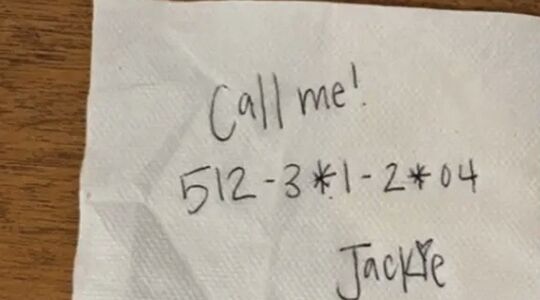 Call me!
512-3*1-2*04
Jackie